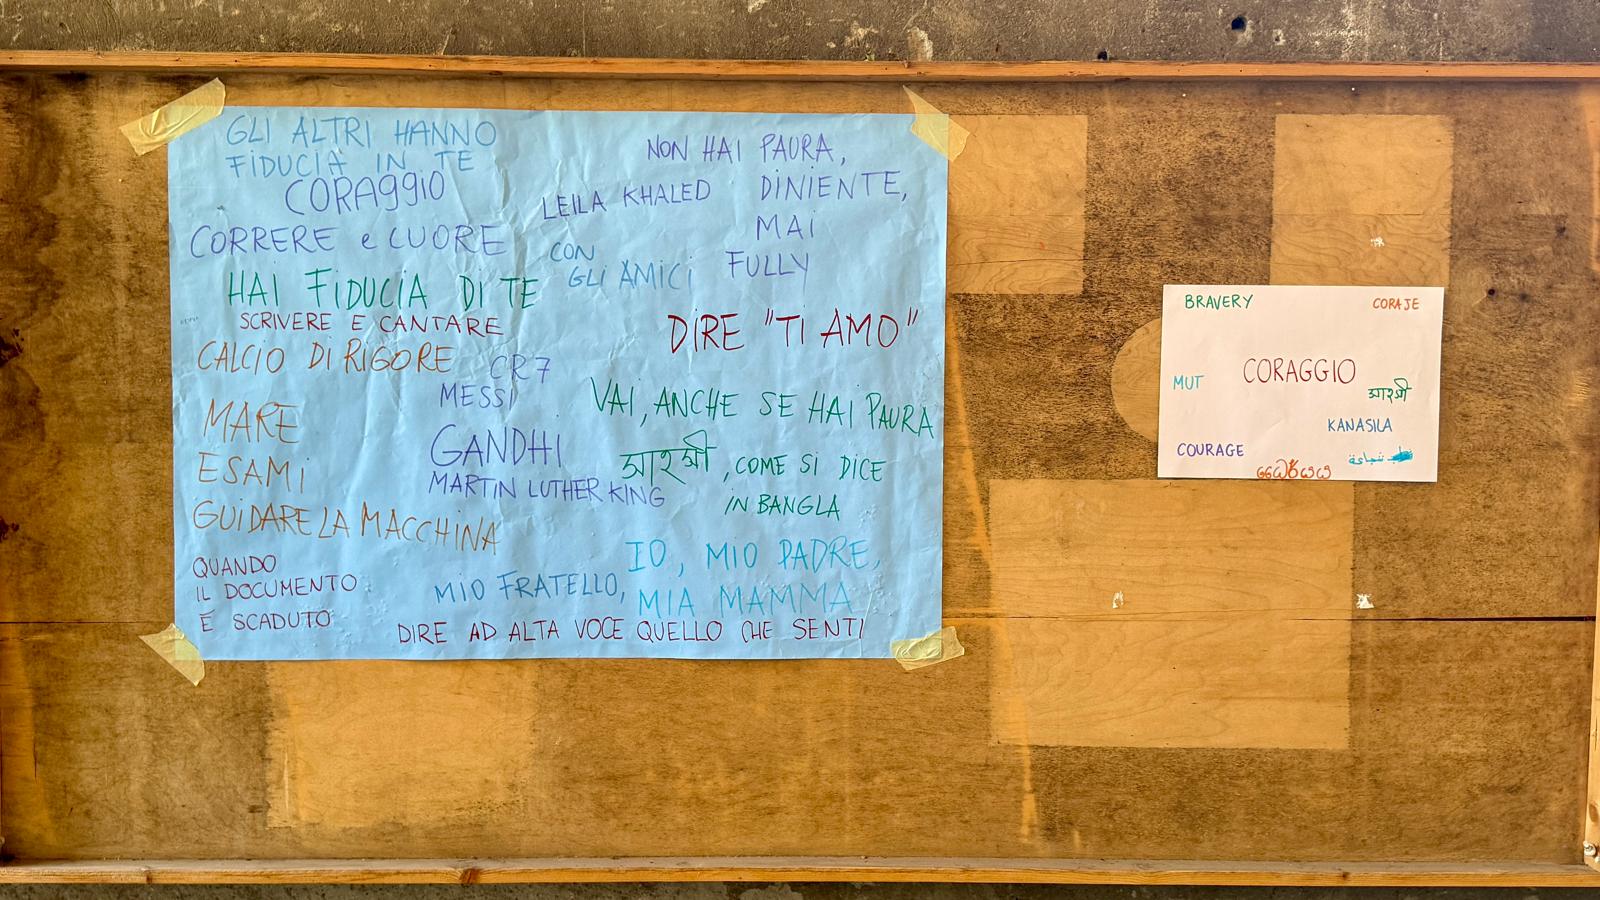 GLI ALTRI HANNO
FIDUCIA IN TE
CORAGGIO
CORRERE e CUORE
HAI FIDUCIA DI TE
SCRIVERE E CANTARE
CALCIO DI RIGORE
CR7
MESSI
MARE
ESAMI
GUIDARE LA MACCHINA
QUANDO
IL DOCUMENTO
È SCADUTO
GANDHI
MARTIN LUTHER KING
LEILA KHALED
CON
GLI AMICI
NON HAI PAURA,
DINIENTE,
MAI
FULLY
DIRE "TI AMO"
VAI, ANCHE SE HAI PAURA
, COME SI DICE
IN BANGLA
IO, MIO PADRE,
MIO FRATELLO, MIA MAMMA
DIRE AD ALTA VOCE QUELLO CHE SENTI
BRAVERY
CORAJE
CORAGGIO
MUT
KANASILA
COURAGE
شجاعة